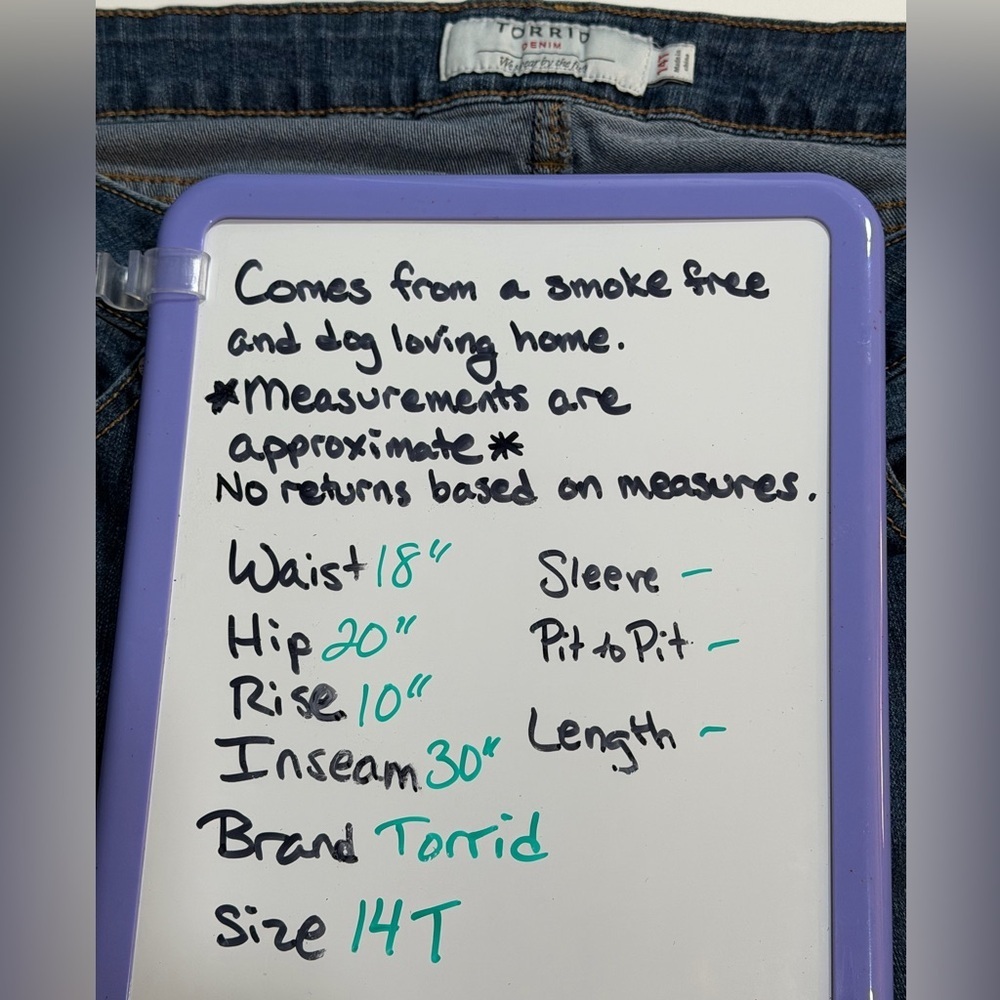 TORRID
DENIM
14T
Comes from a smoke free
and dog loving home.
*Measurements are
approximate*
No returns based on measures.
Waist 18"
Hip 20"
Rise 10"
Inseam 30"
Brand Torrid
Size 14T
Sleeve -
Pit to Pit -
Length -